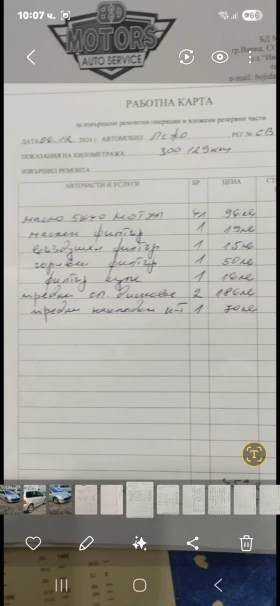 10:07 ч.
66
BD
MOTORS
AUTO SERVICE
БД М
гр.Варна, СО
e-mail: bojida
РАБОТНА КАРТА
за извършени ремонтни операции и вложени резервни части
ДАТА 06.12. 2024 г. АВТОМОБИЛ Пежо РЕГ № СВ
ПОКАЗАНИЯ НА КИЛОМЕТРАЖА 300 129 km
ИЗВЪРШИЛ РЕМОНТА
АВТОЧАСТИ И УСЛУГИ БР ЦЕНА СТ
масло 5W40 МОТУЛ 4л 96лв
маслен филтър 1 19лв
въздушен филтър 1 15лв
горивен филтър 1 50лв
филтър купе 1 16лв
предни сп. дискове 2 186лв
предни накладки к-т 1 70лв
T